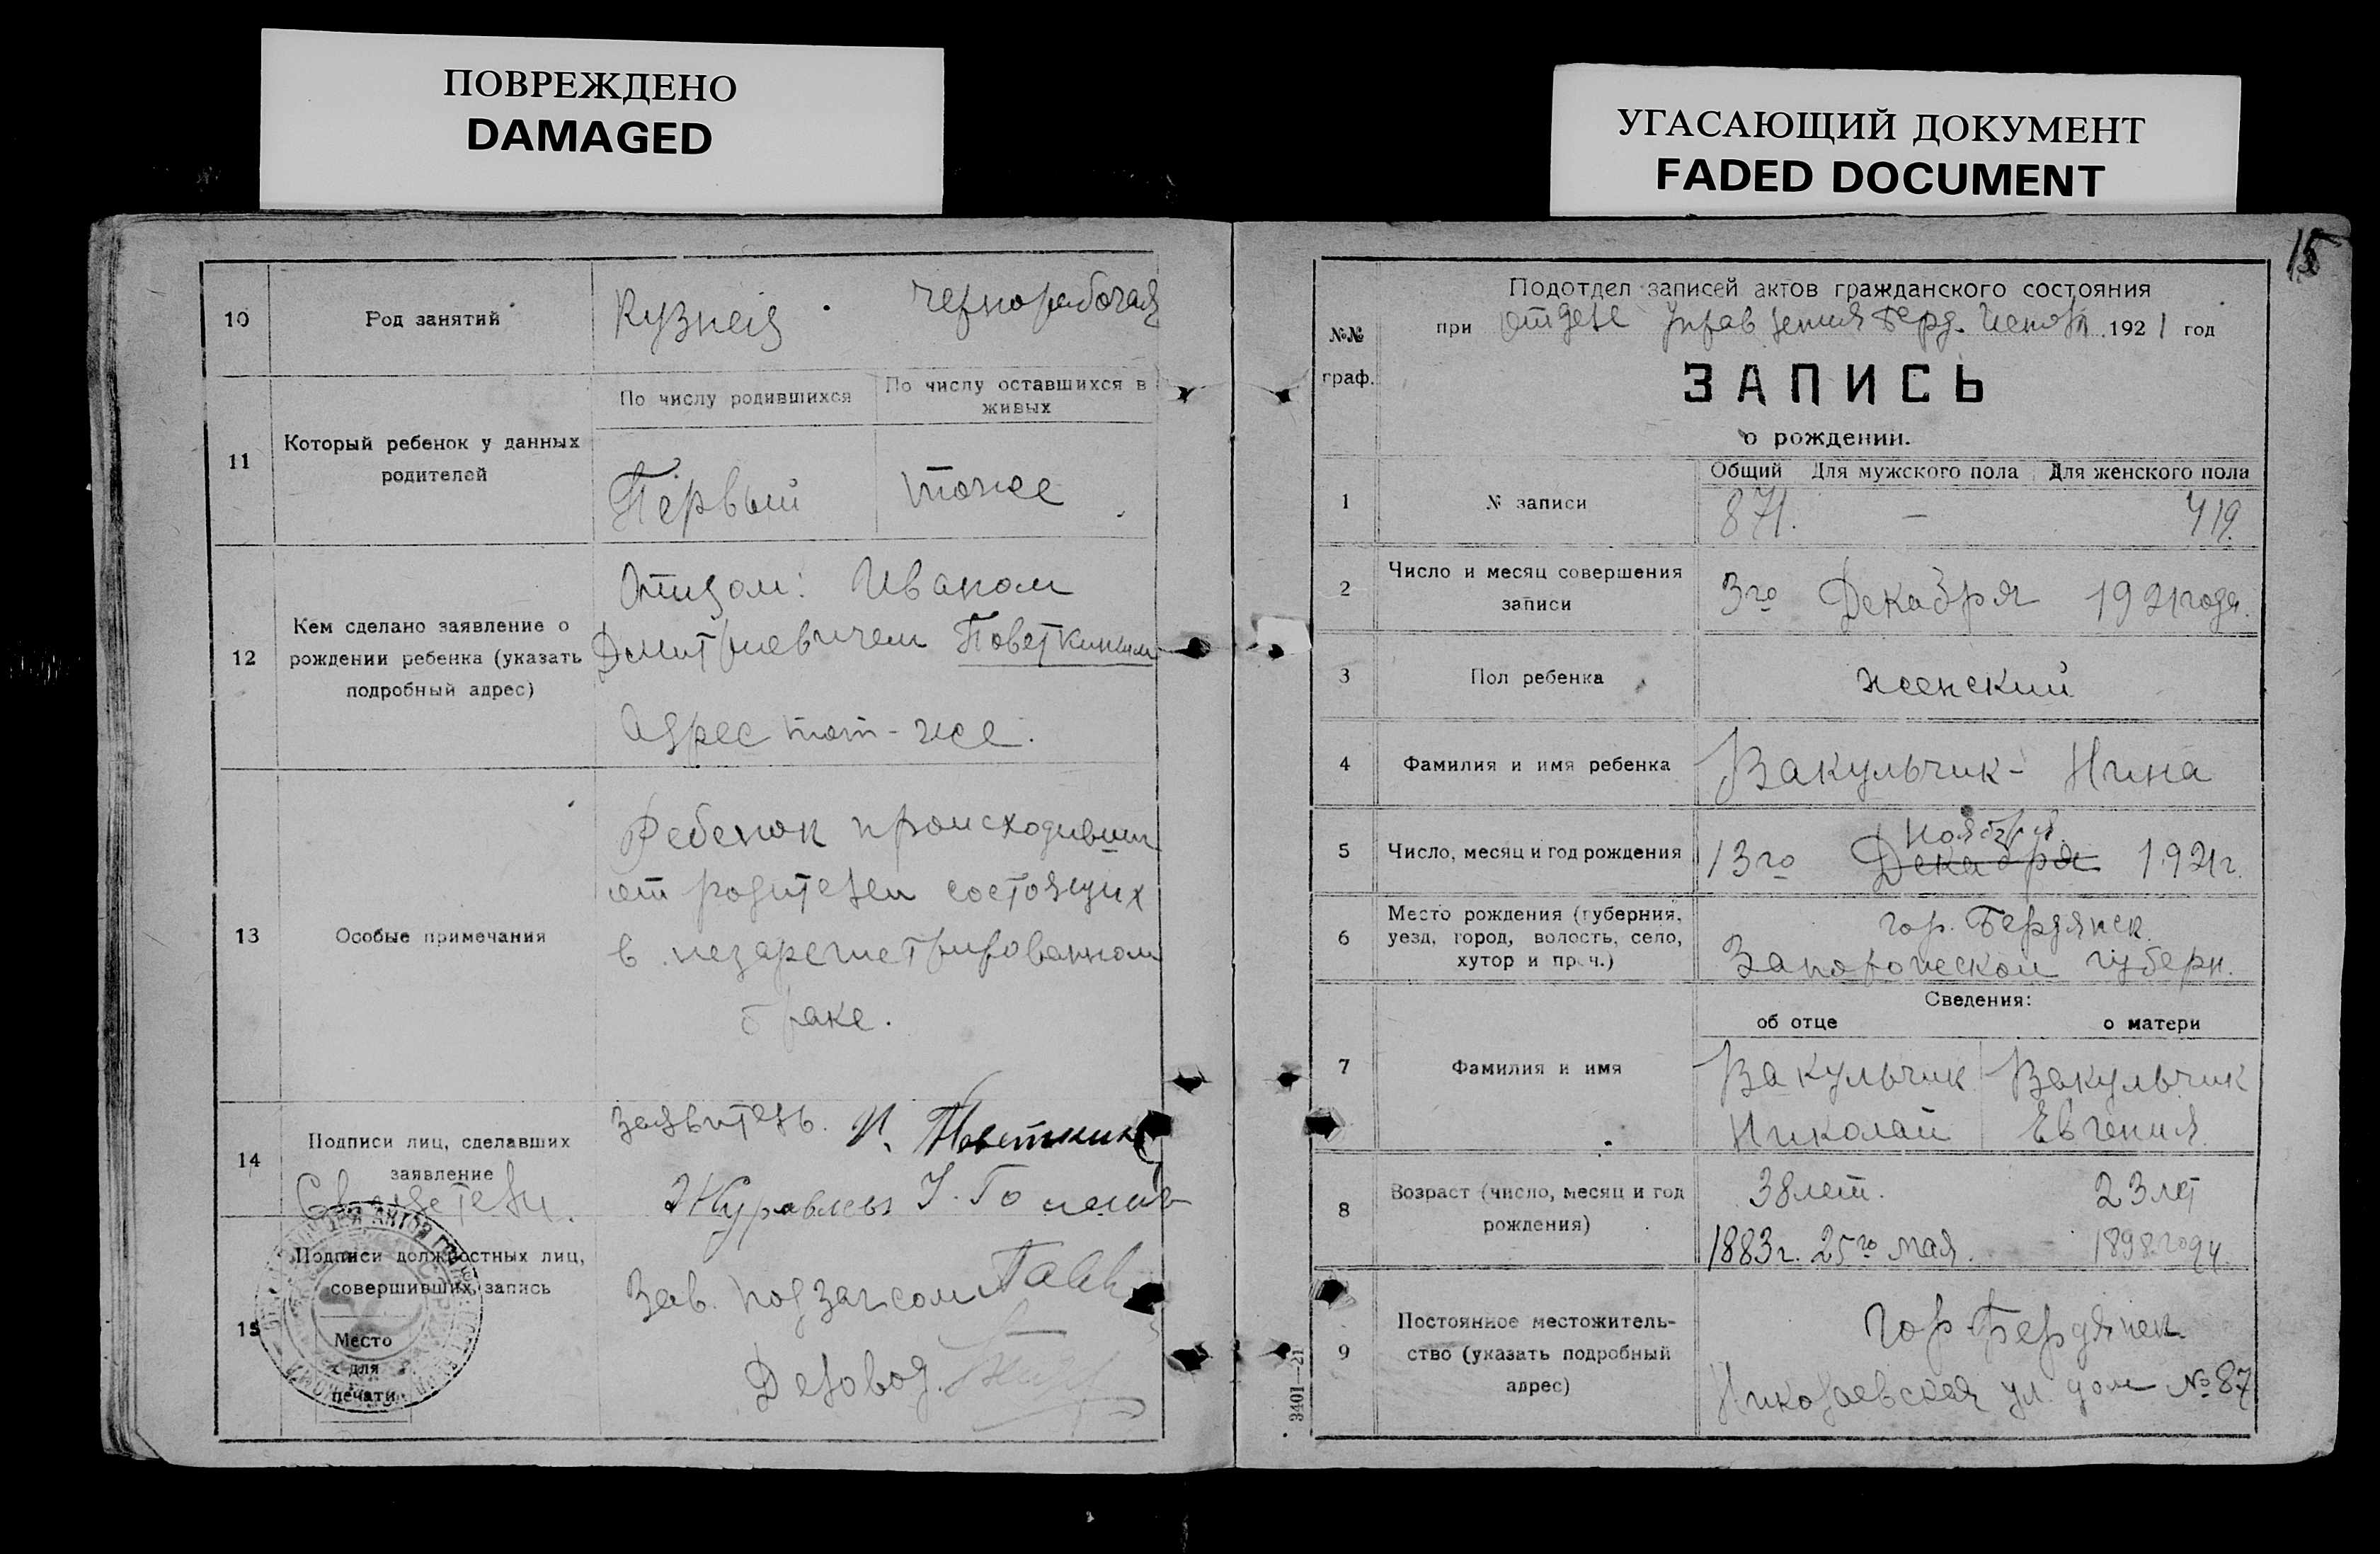 ПОВРЕЖДЕНО
DAMAGED
УГАСАЮЩИЙ ДОКУМЕНТ
FADED DOCUMENT
10
Род занятий
Кузнец
чернорабочая
11
Который ребенок у данных
родителей
По числу родившихся
По числу оставшихся в
живых
Первый
тоже
12
Кем сделано заявление о
рождении ребенка (указать
подробный адрес)
Отцом: Иваном
Дмитриевичем Поветкиным
Адрес тот-же.
13
Особые примечания
Ребенок происходивши
от родителей состоящих
в незарегистрированном
браке.
14
Подписи лиц, сделавших
заявление
Свидетели.
Заявитель. И. Поветкин
Журавлев
15
Подписи должностных лиц,
совершивших запись
Место
для
печати
Зав. подзагсом
Деловод.
15
№№
граф.
Подотдел записей актов гражданского состояния
при Отделе Управления Берд. Исполк. 1921 год
ЗАПИСЬ
о рождении.
1
№ записи
Общий Для мужского пола Для женского пола
871. — 419.
2
Число и месяц совершения
записи
3го Декабря 1921 года.
3
Пол ребенка
женский
4
Фамилия и имя ребенка
Вакульчик - Нина
5
Число, месяц и год рождения
Ноября
13го Декабря 1921г.
6
Место рождения (губерния,
уезд, город, волость, село,
хутор и проч.)
гор. Бердянск
Запорожской губерн.
7
Фамилия и имя
Сведения:
об отце о матери
Вакульчик Вакульчик
Николай Евгения
8
Возраст (число, месяц и год
рождения)
38 лет. 23 лет
1883г. 25го мая. 1898 году.
9
Постоянное местожитель-
ство (указать подробный
адрес)
Гор. Бердянск
Николаевская ул. дом № 87
3401—21